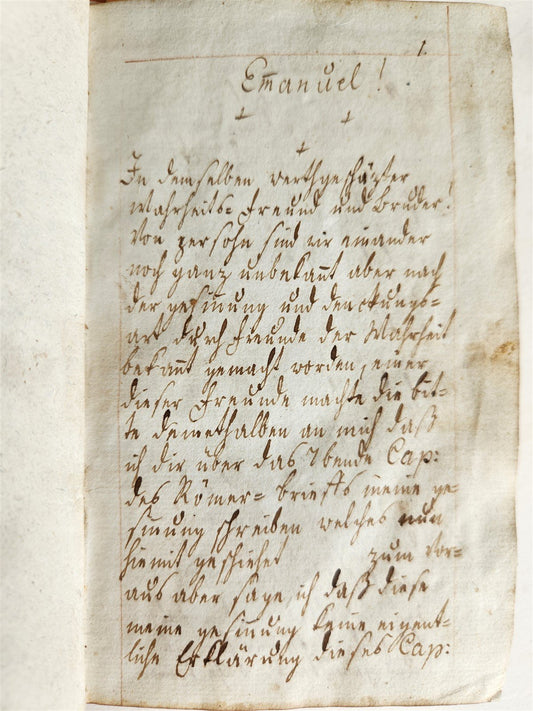 1.
Em̅anuel!
In demselben werthgeschäzter
Wahrheits= Freund und Bruder!
Von persohn sind wir einander
noch ganz unbekan̅t aber nach
der gesin̅ung und denckungs=
art durch Freunde der Wahrheit
bekan̅t gemacht worden, einer
dieser Freunde machte die bit=
te demethalben an mich daß
ich dir über das 7bende Cap:
des Römer= briefs meine ge=
sin̅ung schreiben welches nun
hiemit geschiehet zum vor=
aus aber sage ich daß diese
meine gesin̅ung keine eigent=
liche Erklärung dieses Cap: